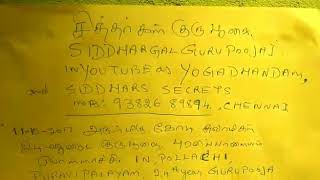 சித்தர்கள் குருபூஜை
SIDDHARGAL GURU POOJAI
IN YOUTUBE as YOGADHANDAM,
and SIDDHARS SECRETS
MOB: 93826 89894. CHENNAI
அருள்மிகு கோடி
குருபூஜை
IN POLLACHI,
PURAVI PALAYAM, GURU POOJA